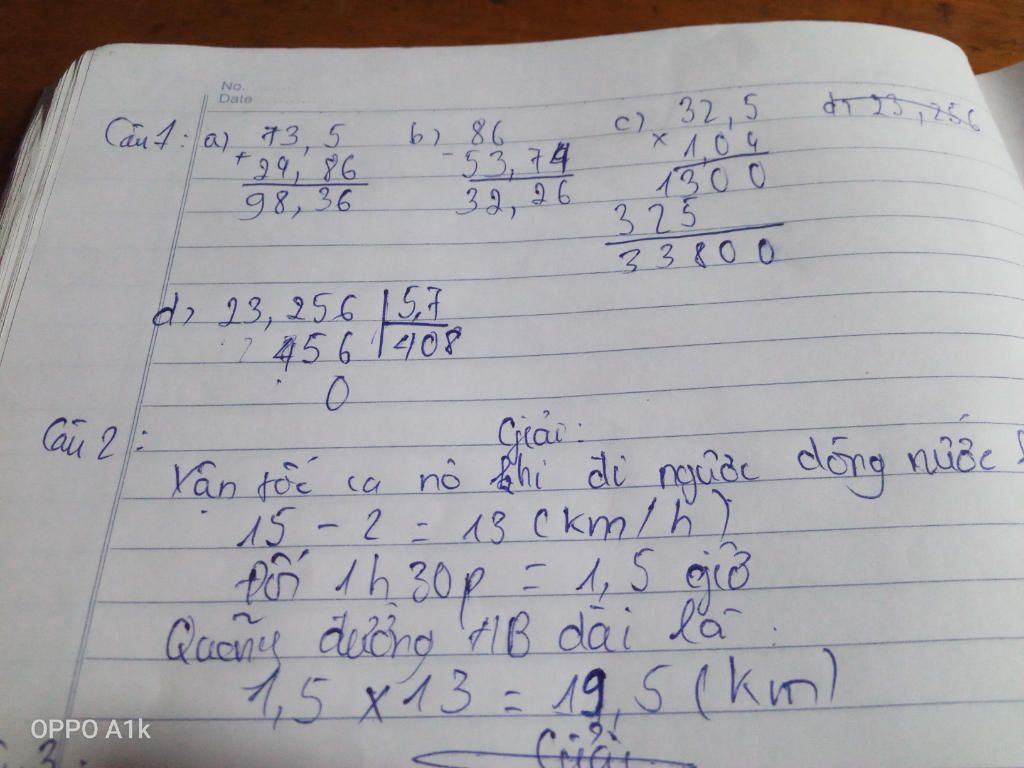 No.
Date
Câu 1: a) 73,5 b) 86 c) 32,5 d, 23,256
+ 24,86 - 53,74 x 1,04
98,36 32,26 1300
325
33800
d, 23,256 5,7
456 408
0
Câu 2: Giải:
Vận tốc ca nô khi đi ngược dòng nước
15 - 2 = 13 (km/h)
Đổi 1h30p = 1,5 giờ
Quãng đường AB dài là:
1,5 x 13 = 19,5 (km)
Giải
3:
OPPO A1k